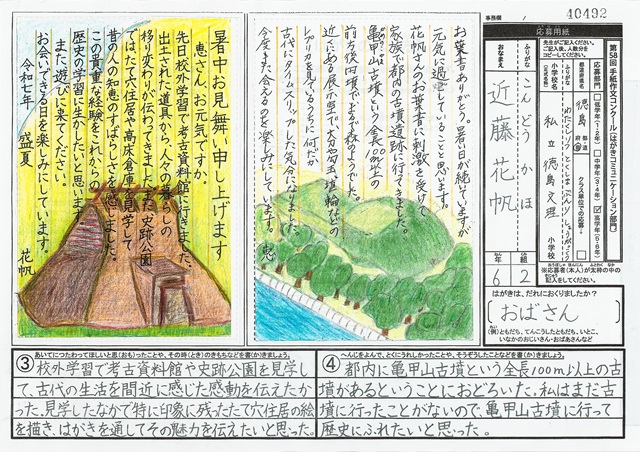 事務欄
40492
応募用紙
第58回 手紙作文コンクール(はがきコミュニケーション部門)
応募部門
低学年(1・2年)
中学年(3・4年)
高学年(5・6年)
クラス単位での応募
都道府県名
徳島
小学校名
私立 徳島文理 小学校
ふりがな
こんどう かほ
おなまえ
近藤 花帆
年 組
6 2
※応募者(本人)が太枠の中の記入をしてください。
はがきは、だれにおくりましたか?
(おばさん)
(例)ともだち、てんこうしたともだち、いとこ、
いなかのおじいさん・おばあさんなど
お葉書ありがとう。暑い日が続いていますが
元気に過ごしていることと思います。
花帆さんのお葉書に刺激を受けて
家族で都内の古墳遺跡に行ってきました。
亀甲山古墳という全長100m以上の
前方後円墳でまるで森のようでした。
近くにある展示室で、大刀や勾玉、埴輪などの
レプリカを見ているうちに何だか
古代にタイムスリップした気分になりました。
今度また会えるのを楽しみにしています。 恵
暑中お見舞い申し上げます
恵さん、お元気ですか。
先日校外学習で考古資料館に行きました。
出土された道具から、人々の暮らしの
移り変わりが伝わってきました。史跡公園
では、たて穴住居や高床倉庫を見学して
昔の人の知恵のすばらしさを感じました。
この貴重な経験をこれからの
歴史の学習に生かしたいと思います。
また、遊びに来てください。
お会いできる日を楽しみにしています。
令和七年 盛夏
花帆
③
あいてにつたわってほしいと思(おも)ったことや、その時(とき)のきもちなどを書(か)きましょう。
校外学習で考古資料館や史跡公園を見学し
て、古代の生活を間近に感じた感動を伝えたか
った。見学したなかで特に印象に残ったたて穴住居の絵
を描き、はがきを通してその魅力を伝えたいと思った。
④
へんじをよんで、とくにうれしかったことや、そうぞうしたことなどを書(か)きましょう。
都内に亀甲山古墳という全長100m以上の古
墳があるということにおどろいた。私はまだ古
墳に行ったことがないので、亀甲山古墳に行って
歴史にふれたいと思った。